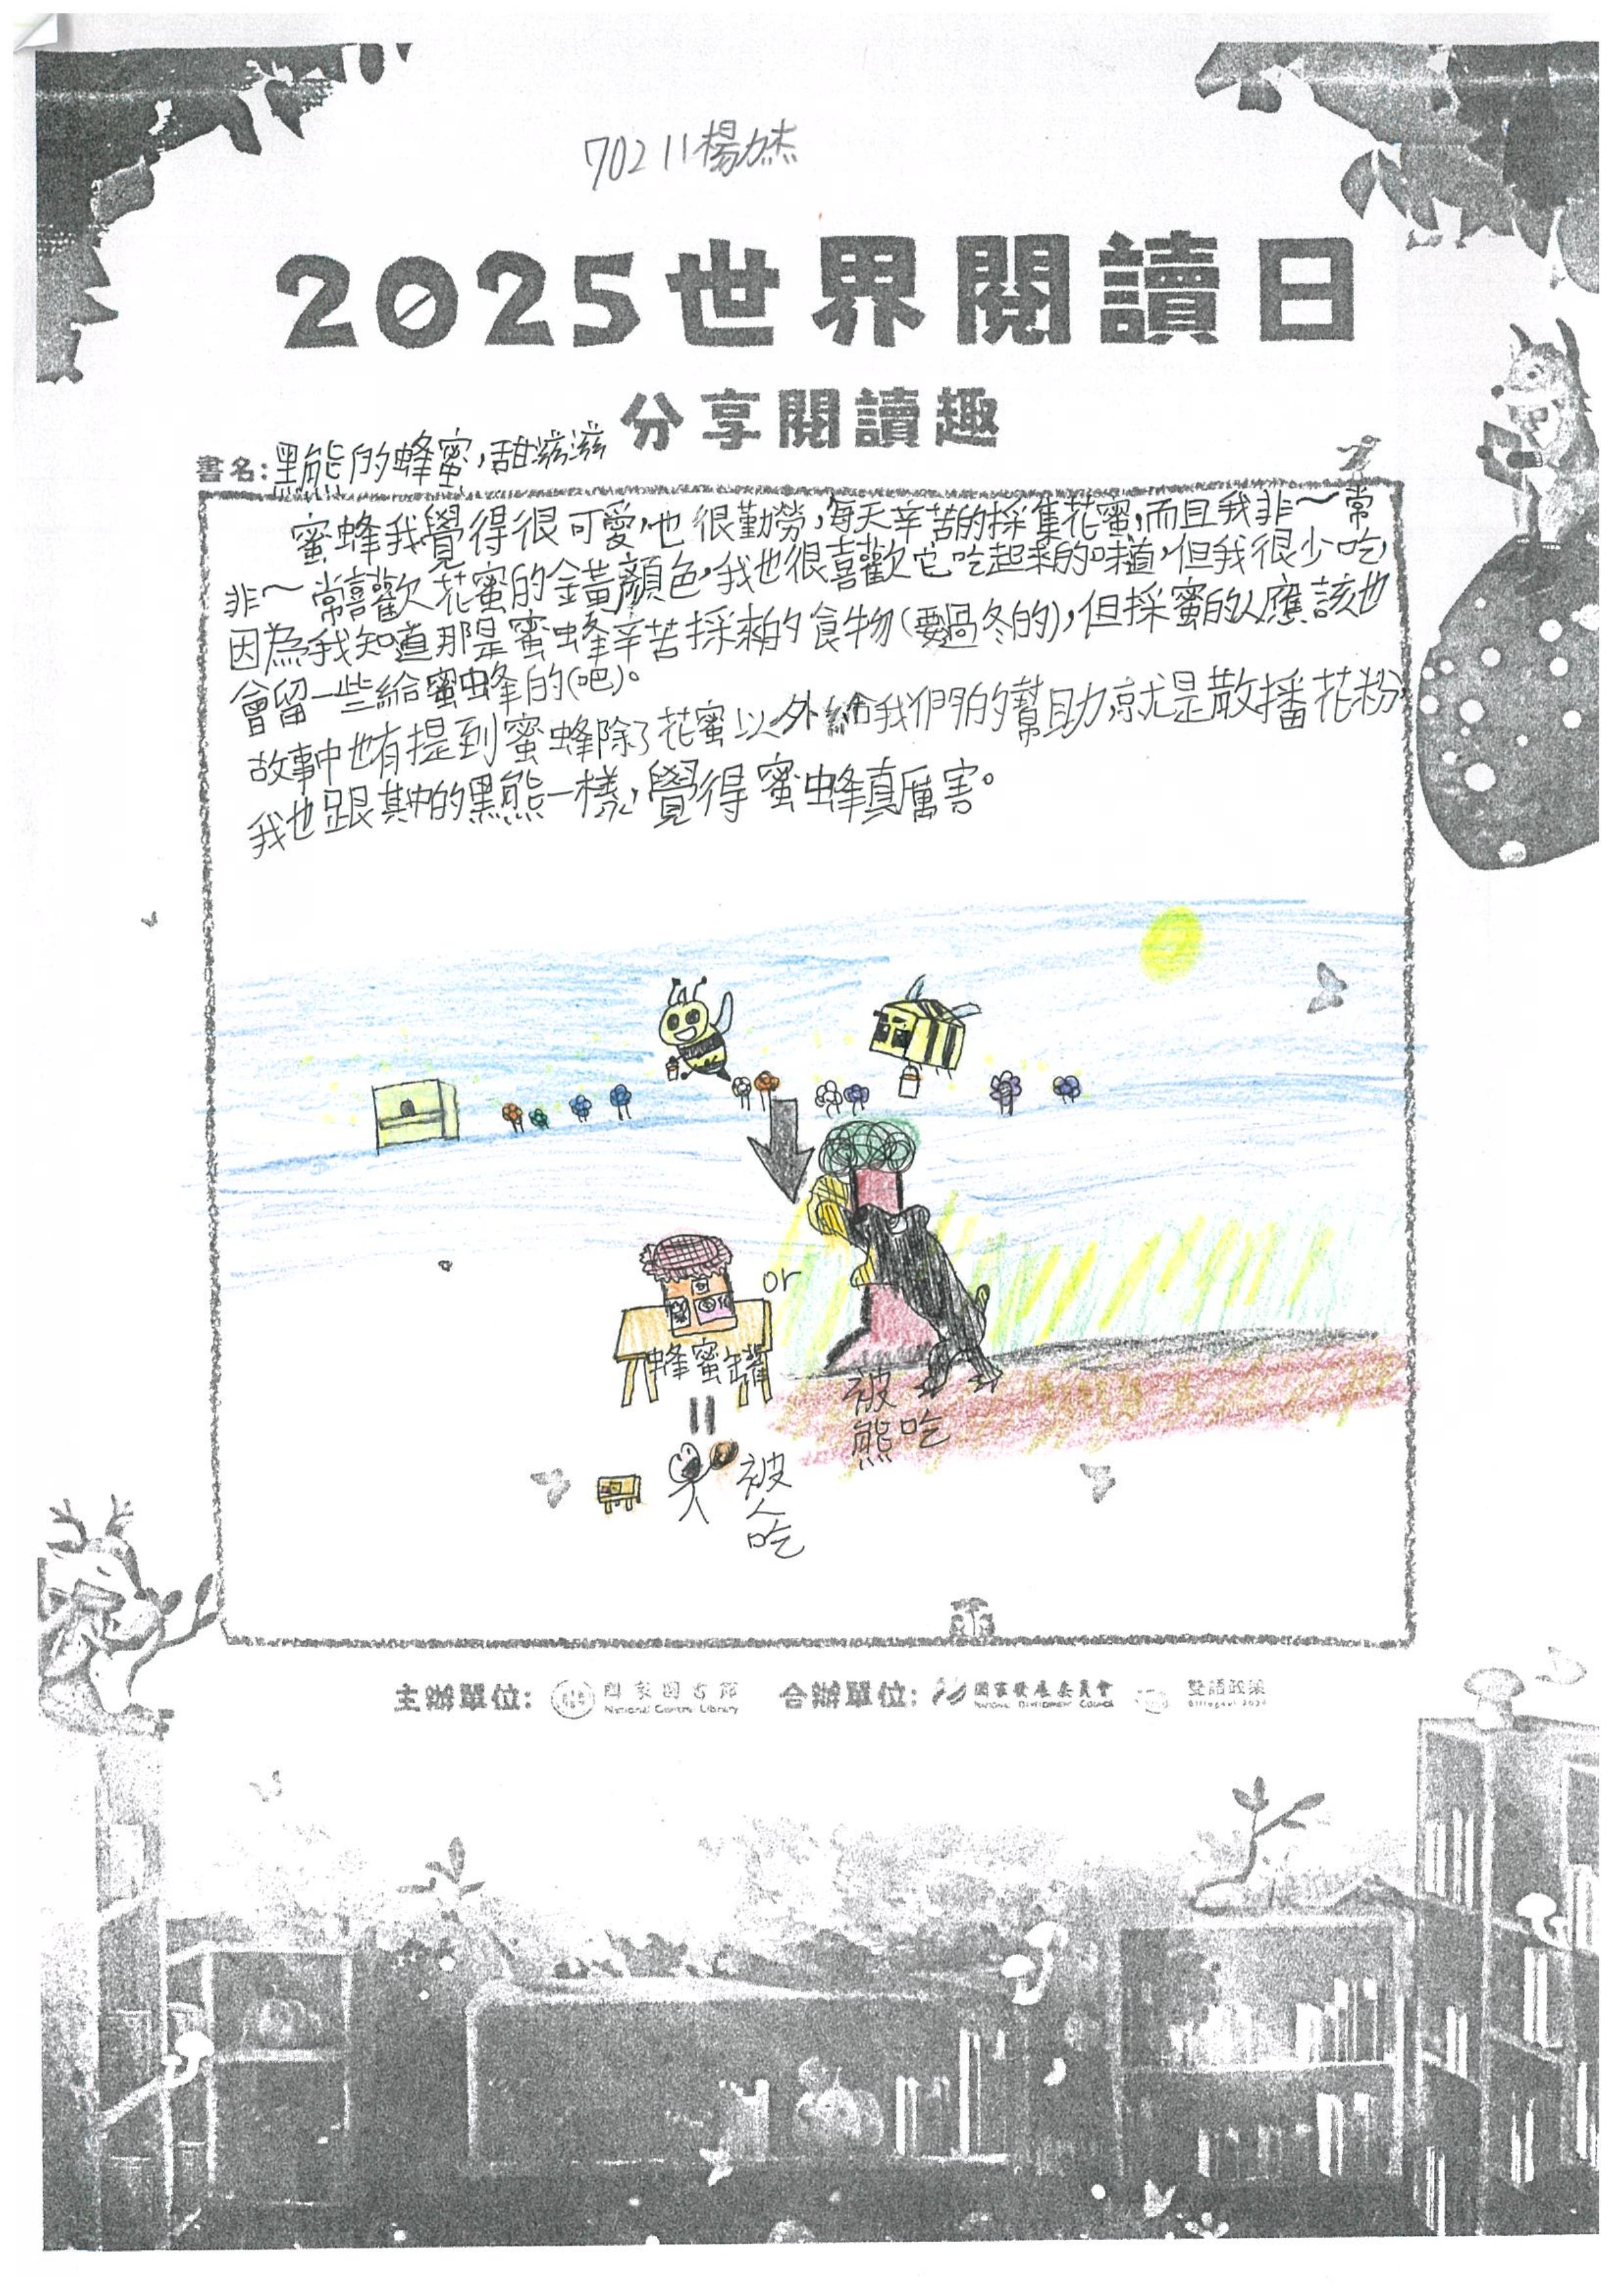 70211楊力杰
2025世界閱讀日
分享閱讀趣
書名:黑熊的蜂蜜,甜滋滋
蜜蜂我覺得很可愛,也很勤勞,每天辛苦的採集花蜜,而且我非~常
非~常喜歡花蜜的金黃顏色,我也很喜歡它吃起來的味道,但我很少吃,
因為我知道那是蜜蜂辛苦採來的食物(要過冬的),但採蜜的人應該也
會留一些給蜜蜂的(吧)。
故事中也有提到蜜蜂除了花蜜以外給我們的幫助,就是散播花粉,
我也跟其中的黑熊一樣,覺得蜜蜂真厲害。
or
蜂蜜罐
被熊吃
被人吃
主辦單位: 國家圖書館 合辦單位: 國家發展委員會 雙語政策
National Central Library National Development Council Bilingual 2030